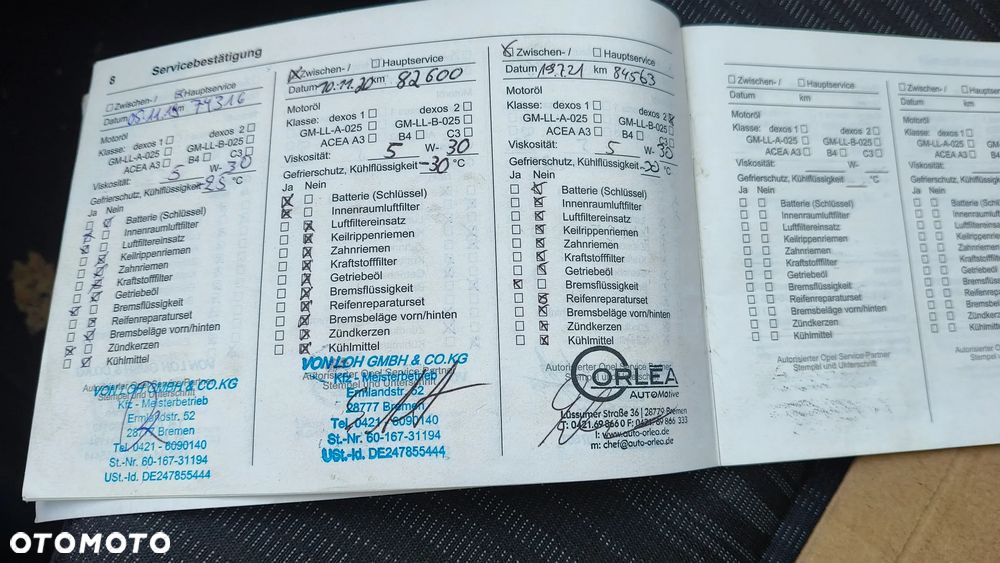 8 Servicebestätigung
Zwischen- / Hauptservice
Datum 05.11.19 km 74316
Motoröl
Klasse: dexos 1 dexos 2
GM-LL-A-025 GM-LL-B-025
ACEA A3 B4 C3
Viskosität: 5 W- 30
Gefrierschutz, Kühlflüssigkeit -25 °C
Ja Nein
Batterie (Schlüssel)
Innenraumluftfilter
Luftfiltereinsatz
Keilrippenriemen
Zahnriemen
Kraftstofffilter
Getriebeöl
Bremsflüssigkeit
Reifenreparaturset
Bremsbeläge vorn/hinten
Zündkerzen
Kühlmittel
Autorisierter Opel Service Partner
Stempel und Unterschrift
VON LOH GMBH & CO.KG
Kfz - Meisterbetrieb
Ermlandstr. 52
28777 Bremen
Tel. 0421 - 6090140
St.-Nr. 60-167-31194
USt.-Id. DE247855444
Zwischen- / Hauptservice
Datum 10.11.20 km 82600
Motoröl
Klasse: dexos 1 dexos 2
GM-LL-A-025 GM-LL-B-025
ACEA A3 B4 C3
Viskosität: 5 W- 30
Gefrierschutz, Kühlflüssigkeit -30 °C
Ja Nein
Batterie (Schlüssel)
Innenraumluftfilter
Luftfiltereinsatz
Keilrippenriemen
Zahnriemen
Kraftstofffilter
Getriebeöl
Bremsflüssigkeit
Reifenreparaturset
Bremsbeläge vorn/hinten
Zündkerzen
Kühlmittel
Autorisierter Opel Service Partner
Stempel und Unterschrift
VON LOH GMBH & CO.KG
Kfz - Meisterbetrieb
Ermlandstr. 52
28777 Bremen
Tel. 0421 - 6090140
St.-Nr. 60-167-31194
USt.-Id. DE247855444
Zwischen- / Hauptservice
Datum 19.7.21 km 84563
Motoröl
Klasse: dexos 1 dexos 2
GM-LL-A-025 GM-LL-B-025
ACEA A3 B4 C3
Viskosität: 5 W- 30
Gefrierschutz, Kühlflüssigkeit -20 °C
Ja Nein
Batterie (Schlüssel)
Innenraumluftfilter
Luftfiltereinsatz
Keilrippenriemen
Zahnriemen
Kraftstofffilter
Getriebeöl
Bremsflüssigkeit
Reifenreparaturset
Bremsbeläge vorn/hinten
Zündkerzen
Kühlmittel
Autorisierter Opel Service Partner
ORLEA
AUTOMotive
Lüssumer Straße 36 | 28779 Bremen
T: 0421.69 866 0 F: 0421.69 866 333
I: www.auto-orleo.de
m: chef@auto-orleo.de
Zwischen- / Hauptservice
Datum km
Motoröl
Klasse: dexos 1 dexos 2
GM-LL-A-025 GM-LL-B-025
ACEA A3 B4 C3
Viskosität: W-
Gefrierschutz, Kühlflüssigkeit °C
Ja Nein
Batterie (Schlüssel)
Innenraumluftfilter
Luftfiltereinsatz
Keilrippenriemen
Zahnriemen
Kraftstofffilter
Getriebeöl
Bremsflüssigkeit
Reifenreparaturset
Bremsbeläge vorn/hinten
Zündkerzen
Kühlmittel
Autorisierter Opel Service Partner
Stempel und Unterschrift
Zwischen- /
Datum
Motoröl
Klasse: dexos 1
GM-LL-A-025
ACEA A3
Viskosität:
Gefrierschutz, Kühlflüssigkeit
Ja Nein
Batterie (Schlüssel)
Innenraumluftfilter
Luftfiltereinsatz
Keilrippenriemen
Zahnriemen
Kraftstofffilter
Getriebeöl
Bremsflüssigkeit
Zündkerzen
Kühlmittel
OTOMOTO